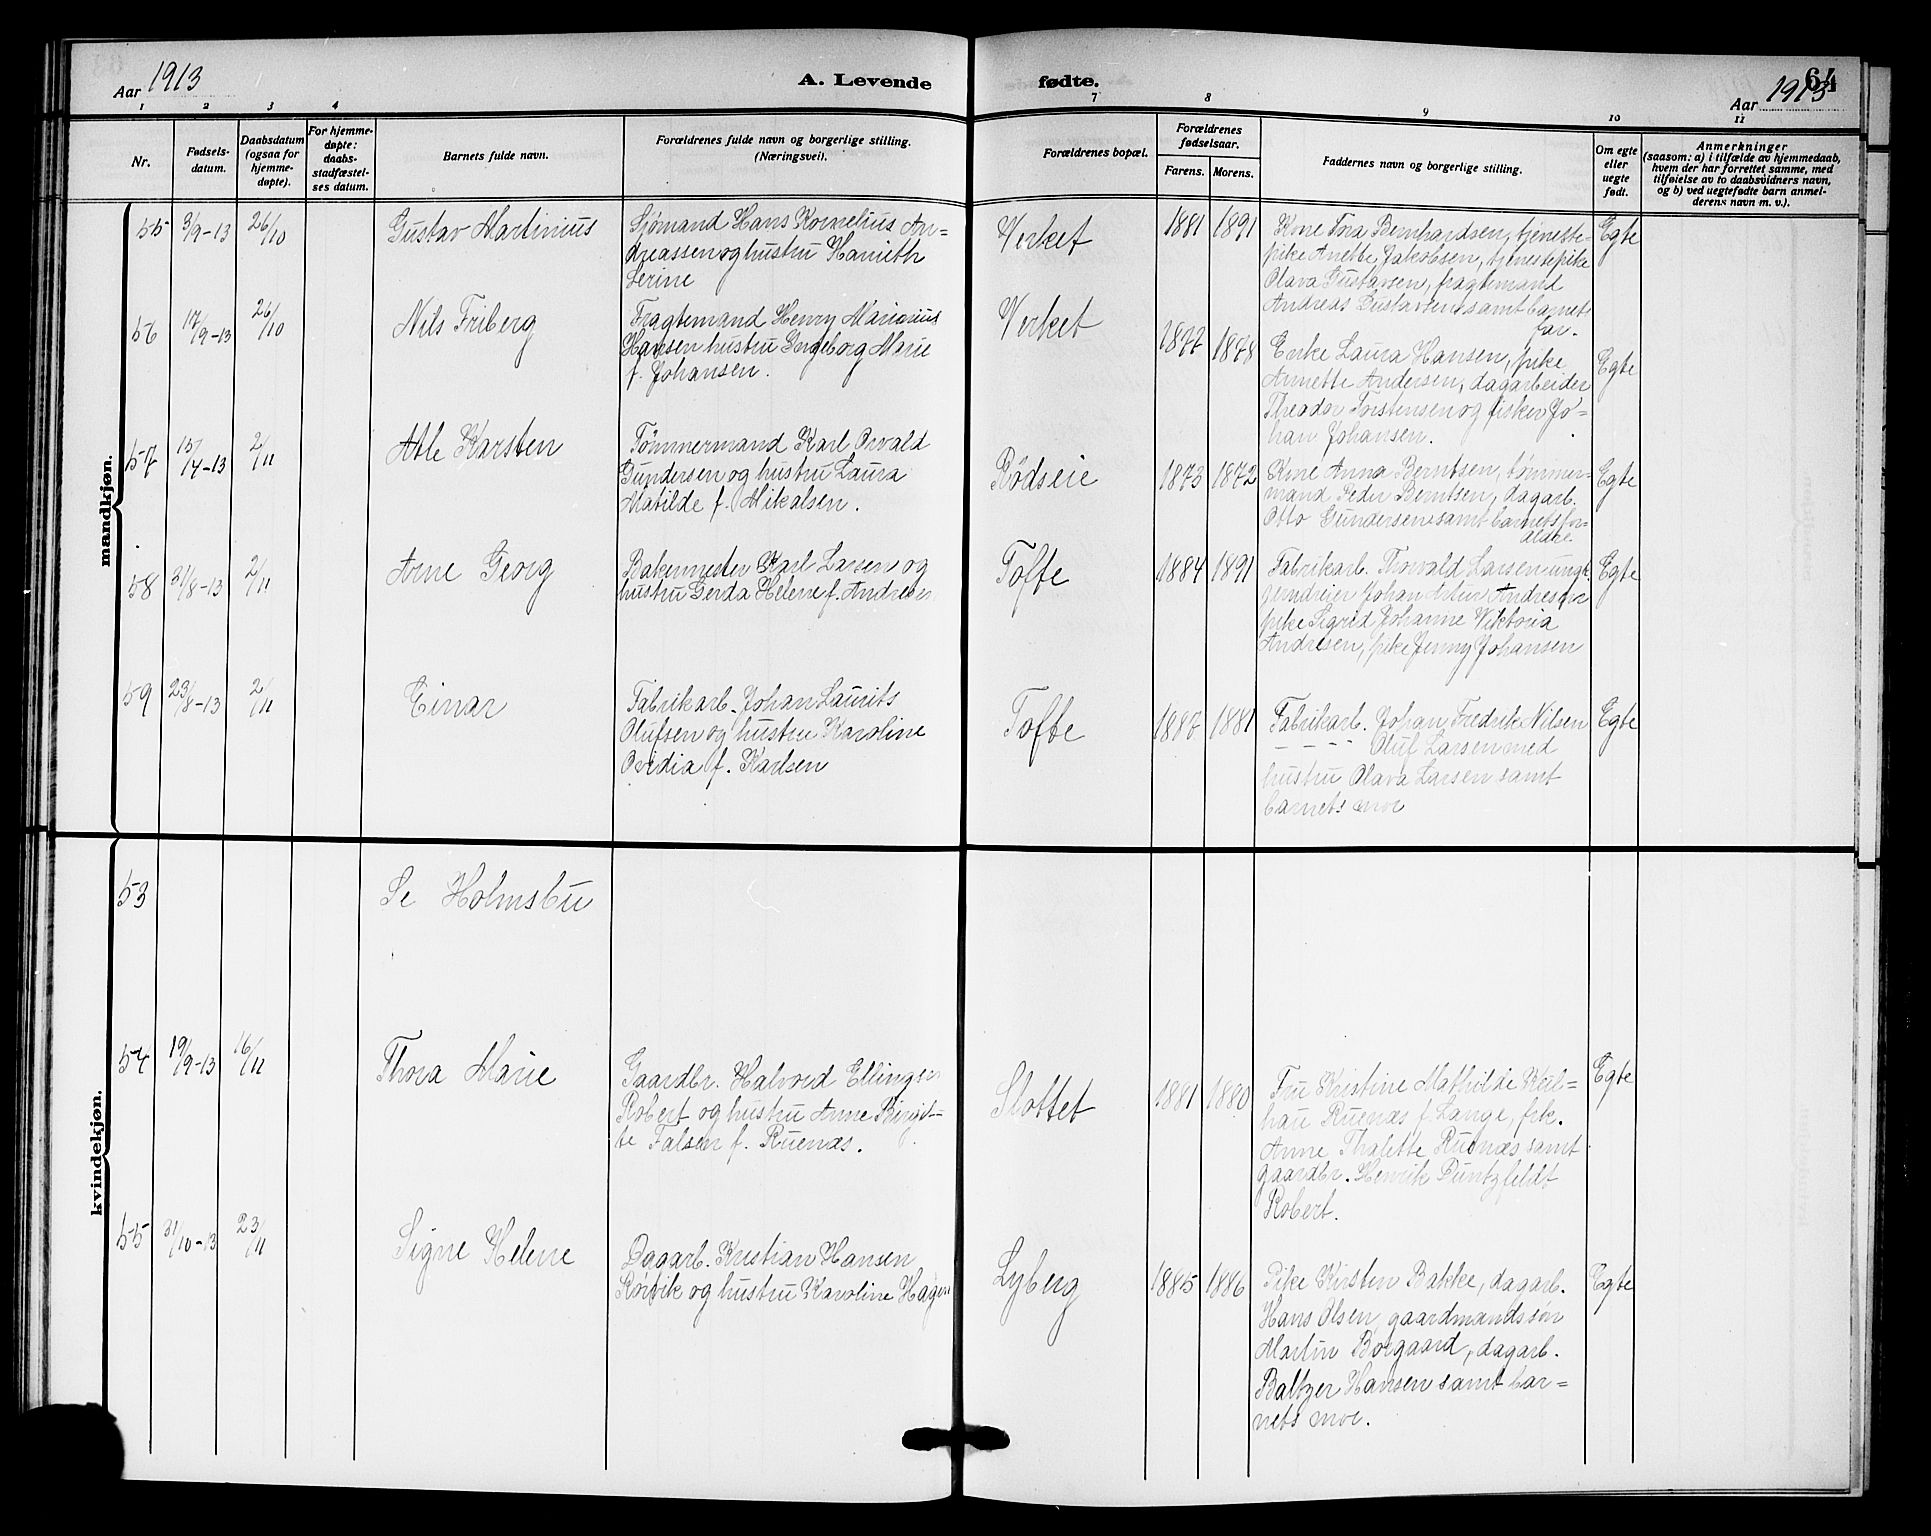 Aar 1913
A. Levende
fødte.
Aar 1913
64
1 2 3 4 7 8 9 10 11
Nr.
Fødsels-
datum.
Daabsdatum
(ogsaa for
hjemme-
døpte).
For hjemme-
døpte:
daabs-
stadfæstel-
ses datum.
Barnets fulde navn.
Forældrenes fulde navn og borgerlige stilling.
(Næringsvei).
Forældrenes bopæl.
Forældrenes
fødselsaar.
Farens. Morens.
Faddernes navn og borgerlige stilling.
Om egte
eller
uegte
født.
Anmerkninger
(saasom: a) i tilfælde av hjemmedaab,
hvem der har forrettet samme, med
tilføielse av to daabsvidners navn,
og b) ved uegtefødte barn anmel-
derens navn m. v.).
mandkjøn.
55 3/9-13 26/10 Gustav Martinius
Sjømand Hans Kornelius An=
dreassen og hustru Hanieth
Serine
Verket 1881 1891
Kone Tora Bernhardsen, tjeneste-
pike Anette Jakobsen, tjenestepike
Olava Gustavsen, fragtemand
Andreas Gustavsen samt barnets
far.
Egte
56 17/9-13 26/10 Nils Friberg
Fragtemand Henry Marinius
Hansen hustru Ingeborg Marie
f. Johansen.
Verket 1877 1878
Enke Laura Hansen, pike
Annette Andersen, dagarbeider
Theodor Torstensen og fisker Jo=
han Johansen.
Egte
57 15/4-13 2/11 Atle Karsten
Tømmermand Karl Osvald
Gundersen og hustru Laura
Matilde f. Mikalsen.
Rødseie 1873 1872
Kone Anna Berntsen, tømmer-
mand Peder Berntsen, dagarb.
Otto Gundersen samt barnets for-
ældre
Egte
58 31/8-13 2/11 Arne Georg
Bakermester Karl Larsen og
hustru Gerda Helene f. Andresen
Tofte 1884 1891
Fabrikarb. Thorvald Larsen ungk.
Johan Artur Andresen
pike Sigrid Johanne Viktoria
Andresen, pike Jenny Johansen
Egte
59 23/8-13 2/11 Einar
Fabrikarb. Johan Laurits
Olufsen og hustru Karoline
Ovidia f. Karlsen
Tofte 1887 1881
Fabrikarb. Johan Fredrik Nilsen
- - - - Oluf Larsen med
hustru Olava Larsen samt
barnets mor
Egte
kvindekjøn.
53 Se Holmsbu
54 19/9-13 16/11 Thora Marie
Gaardbr. Halvord Ellingsen
Robert og hustru Anne Birgit-
te Falsen f. Ruenæs.
Slottet 1881 1880
Fru Kristine Mathilde Kul=
hau Ruenæs f. Lange, frk.
Anne Thalette Ruenæs samt
gaardbr. Henrik Duntzfeldt
Robert.
Egte
55 31/10-13 23/11 Signe Helene
Dagarb. Kristian Hansen
Rørvik og hustru Karoline Hagen
Lyberg 1885 1886
Pike Kirsten Bakke, dagarb.
Hans Olsen, gaardmandssøn
Martin Borgaard, dagarb.
Baltzer Hansen samt bar=
nets mor.
Egte